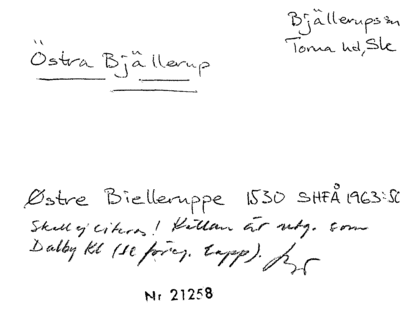 Bjällerups sn
Torna hd, Sk
Östra Bjällerup
Østre Bielleruppe 1530 SHFÅ 1963: 50
Skall ej citeras! Källan är utg. som
Dalby Kl (se föreg. lapp).
Nr 21258